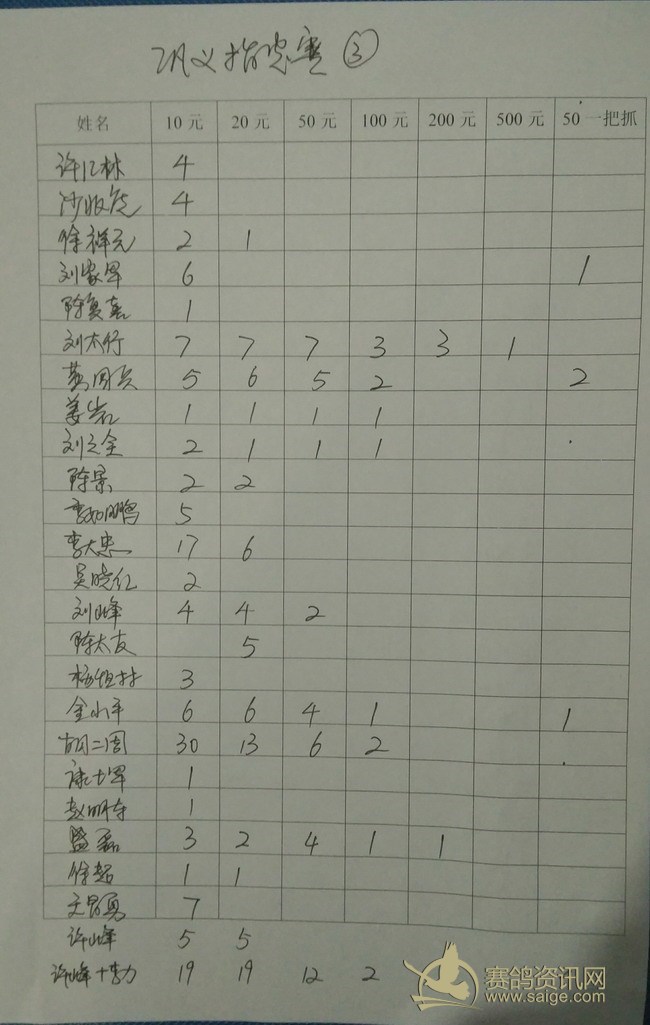 巩义指定赛 ③
姓名 10元 20元 50元 100元 200元 500元 50一把抓
许仁林 4
4
徐祥元 2 1
刘家军 6 1
陈复喜 1
刘太行 7 7 7 3 3 1
黄国兵 5 6 5 2 2
姜岩 1 1 1 1
刘之全 2 1 1 1
陈景 2 2
李如鹏 5
李大忠 17 6
吴晓红 2
刘峰 4 4 2
陈太友 5
3
金小平 6 6 4 1 1
胡二周 30 13 6 2
康士军 1
赵明存 1
盛磊 3 2 4 1 1
徐超 1 1
王昌勇 7
许峰 5 5
许峰十 19 19 12 2
赛鸽资讯网
www.saige.com